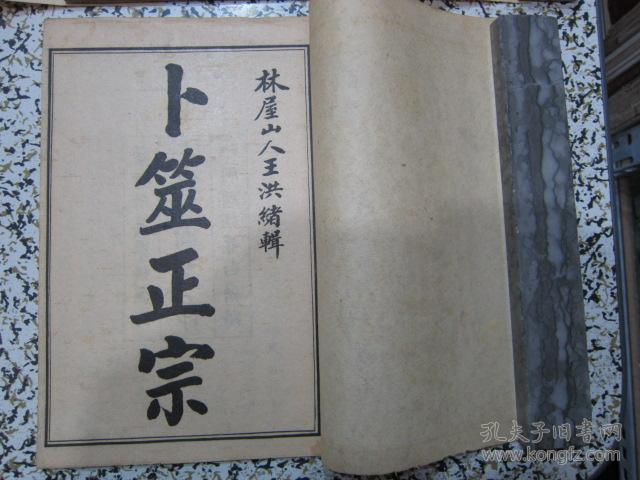 林屋山人王洪緒輯
卜筮正宗
孔夫子旧书网
www.kongfz.com